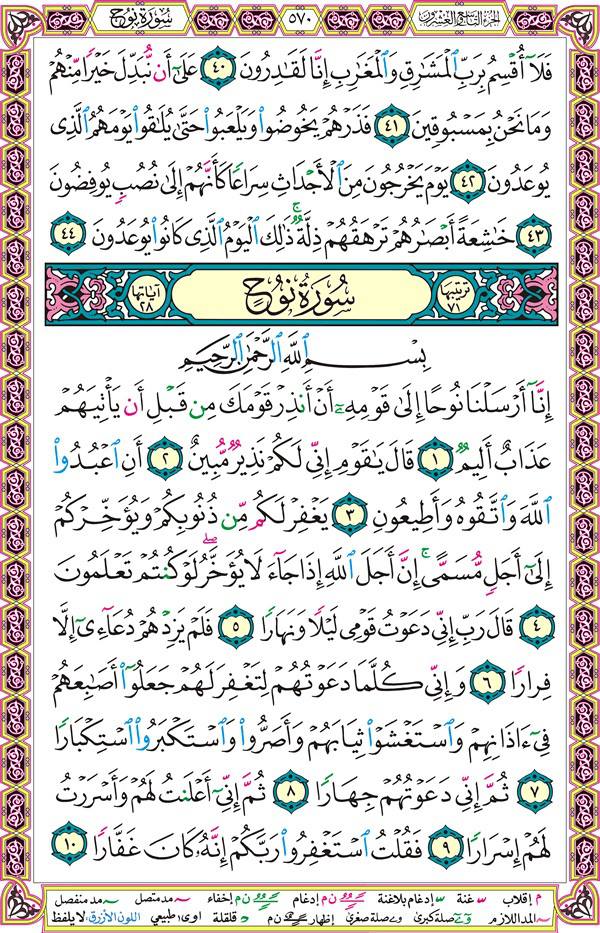 سُورَةُ نُوحٍ
٥٧٠
الجزء التاسع والعشرون
فَلَآ أُقْسِمُ بِرَبِّ ٱلْمَشَٰرِقِ وَٱلْمَغَٰرِبِ إِنَّا لَقَٰدِرُونَ ٤٠ عَلَىٰٓ أَن نُّبَدِّلَ خَيْرًا مِّنْهُمْ
وَمَا نَحْنُ بِمَسْبُوقِينَ ٤١ فَذَرْهُمْ يَخُوضُوا۟ وَيَلْعَبُوا۟ حَتَّىٰ يُلَٰقُوا۟ يَوْمَهُمُ ٱلَّذِى
يُوعَدُونَ ٤٢ يَوْمَ يَخْرُجُونَ مِنَ ٱلْأَجْدَاثِ سِرَاعًا كَأَنَّهُمْ إِلَىٰ نُصُبٍ يُوفِضُونَ
٤٣ خَٰشِعَةً أَبْصَٰرُهُمْ تَرْهَقُهُمْ ذِلَّةٌ ۚ ذَٰلِكَ ٱلْيَوْمُ ٱلَّذِى كَانُوا۟ يُوعَدُونَ ٤٤
ترتيبها ٧١ سُورَةُ نُوحٍ آياتها ٢٨
بِسْمِ ٱللَّهِ ٱلرَّحْمَٰنِ ٱلرَّحِيمِ
إِنَّآ أَرْسَلْنَا نُوحًا إِلَىٰ قَوْمِهِۦٓ أَنْ أَنذِرْ قَوْمَكَ مِن قَبْلِ أَن يَأْتِيَهُمْ
عَذَابٌ أَلِيمٌ ١ قَالَ يَٰقَوْمِ إِنِّى لَكُمْ نَذِيرٌ مُّبِينٌ ٢ أَنِ ٱعْبُدُوا۟
ٱللَّهَ وَٱتَّقُوهُ وَأَطِيعُونِ ٣ يَغْفِرْ لَكُم مِّن ذُنُوبِكُمْ وَيُؤَخِّرْكُمْ
إِلَىٰٓ أَجَلٍ مُّسَمًّى ۚ إِنَّ أَجَلَ ٱللَّهِ إِذَا جَآءَ لَا يُؤَخَّرُ ۖ لَوْ كُنتُمْ تَعْلَمُونَ
٤ قَالَ رَبِّ إِنِّى دَعَوْتُ قَوْمِى لَيْلًا وَنَهَارًا ٥ فَلَمْ يَزِدْهُمْ دُعَآءِىٓ إِلَّا
فِرَارًا ٦ وَإِنِّى كُلَّمَا دَعَوْتُهُمْ لِتَغْفِرَ لَهُمْ جَعَلُوٓا۟ أَصَٰبِعَهُمْ
فِىٓ ءَاذَانِهِمْ وَٱسْتَغْشَوْا۟ ثِيَابَهُمْ وَأَصَرُّوا۟ وَٱسْتَكْبَرُوا۟ ٱسْتِكْبَارًا
٧ ثُمَّ إِنِّى دَعَوْتُهُمْ جِهَارًا ٨ ثُمَّ إِنِّىٓ أَعْلَنتُ لَهُمْ وَأَسْرَرْتُ
لَهُمْ إِسْرَارًا ٩ فَقُلْتُ ٱسْتَغْفِرُوا۟ رَبَّكُمْ إِنَّهُۥ كَانَ غَفَّارًا ١٠
م إقلاب غنة إدغام بلاغنة ن م إدغام ن م إخفاء مد متصل مد منفصل
المد اللازم صلة كبرى صلة صغرى إظهار ن م قلقلة اوى: طبيعي اللون الأزرق: لا يلفظ